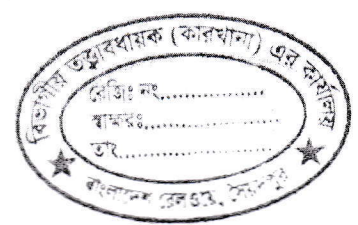 বিভাগীয় তত্ত্বাবধায়ক (কারখানা) এর কার্যালয়
রেজিঃ নং.................
স্বাক্ষরঃ.................
তাং.................
বাংলাদেশ রেলওয়ে, সৈয়দপুর